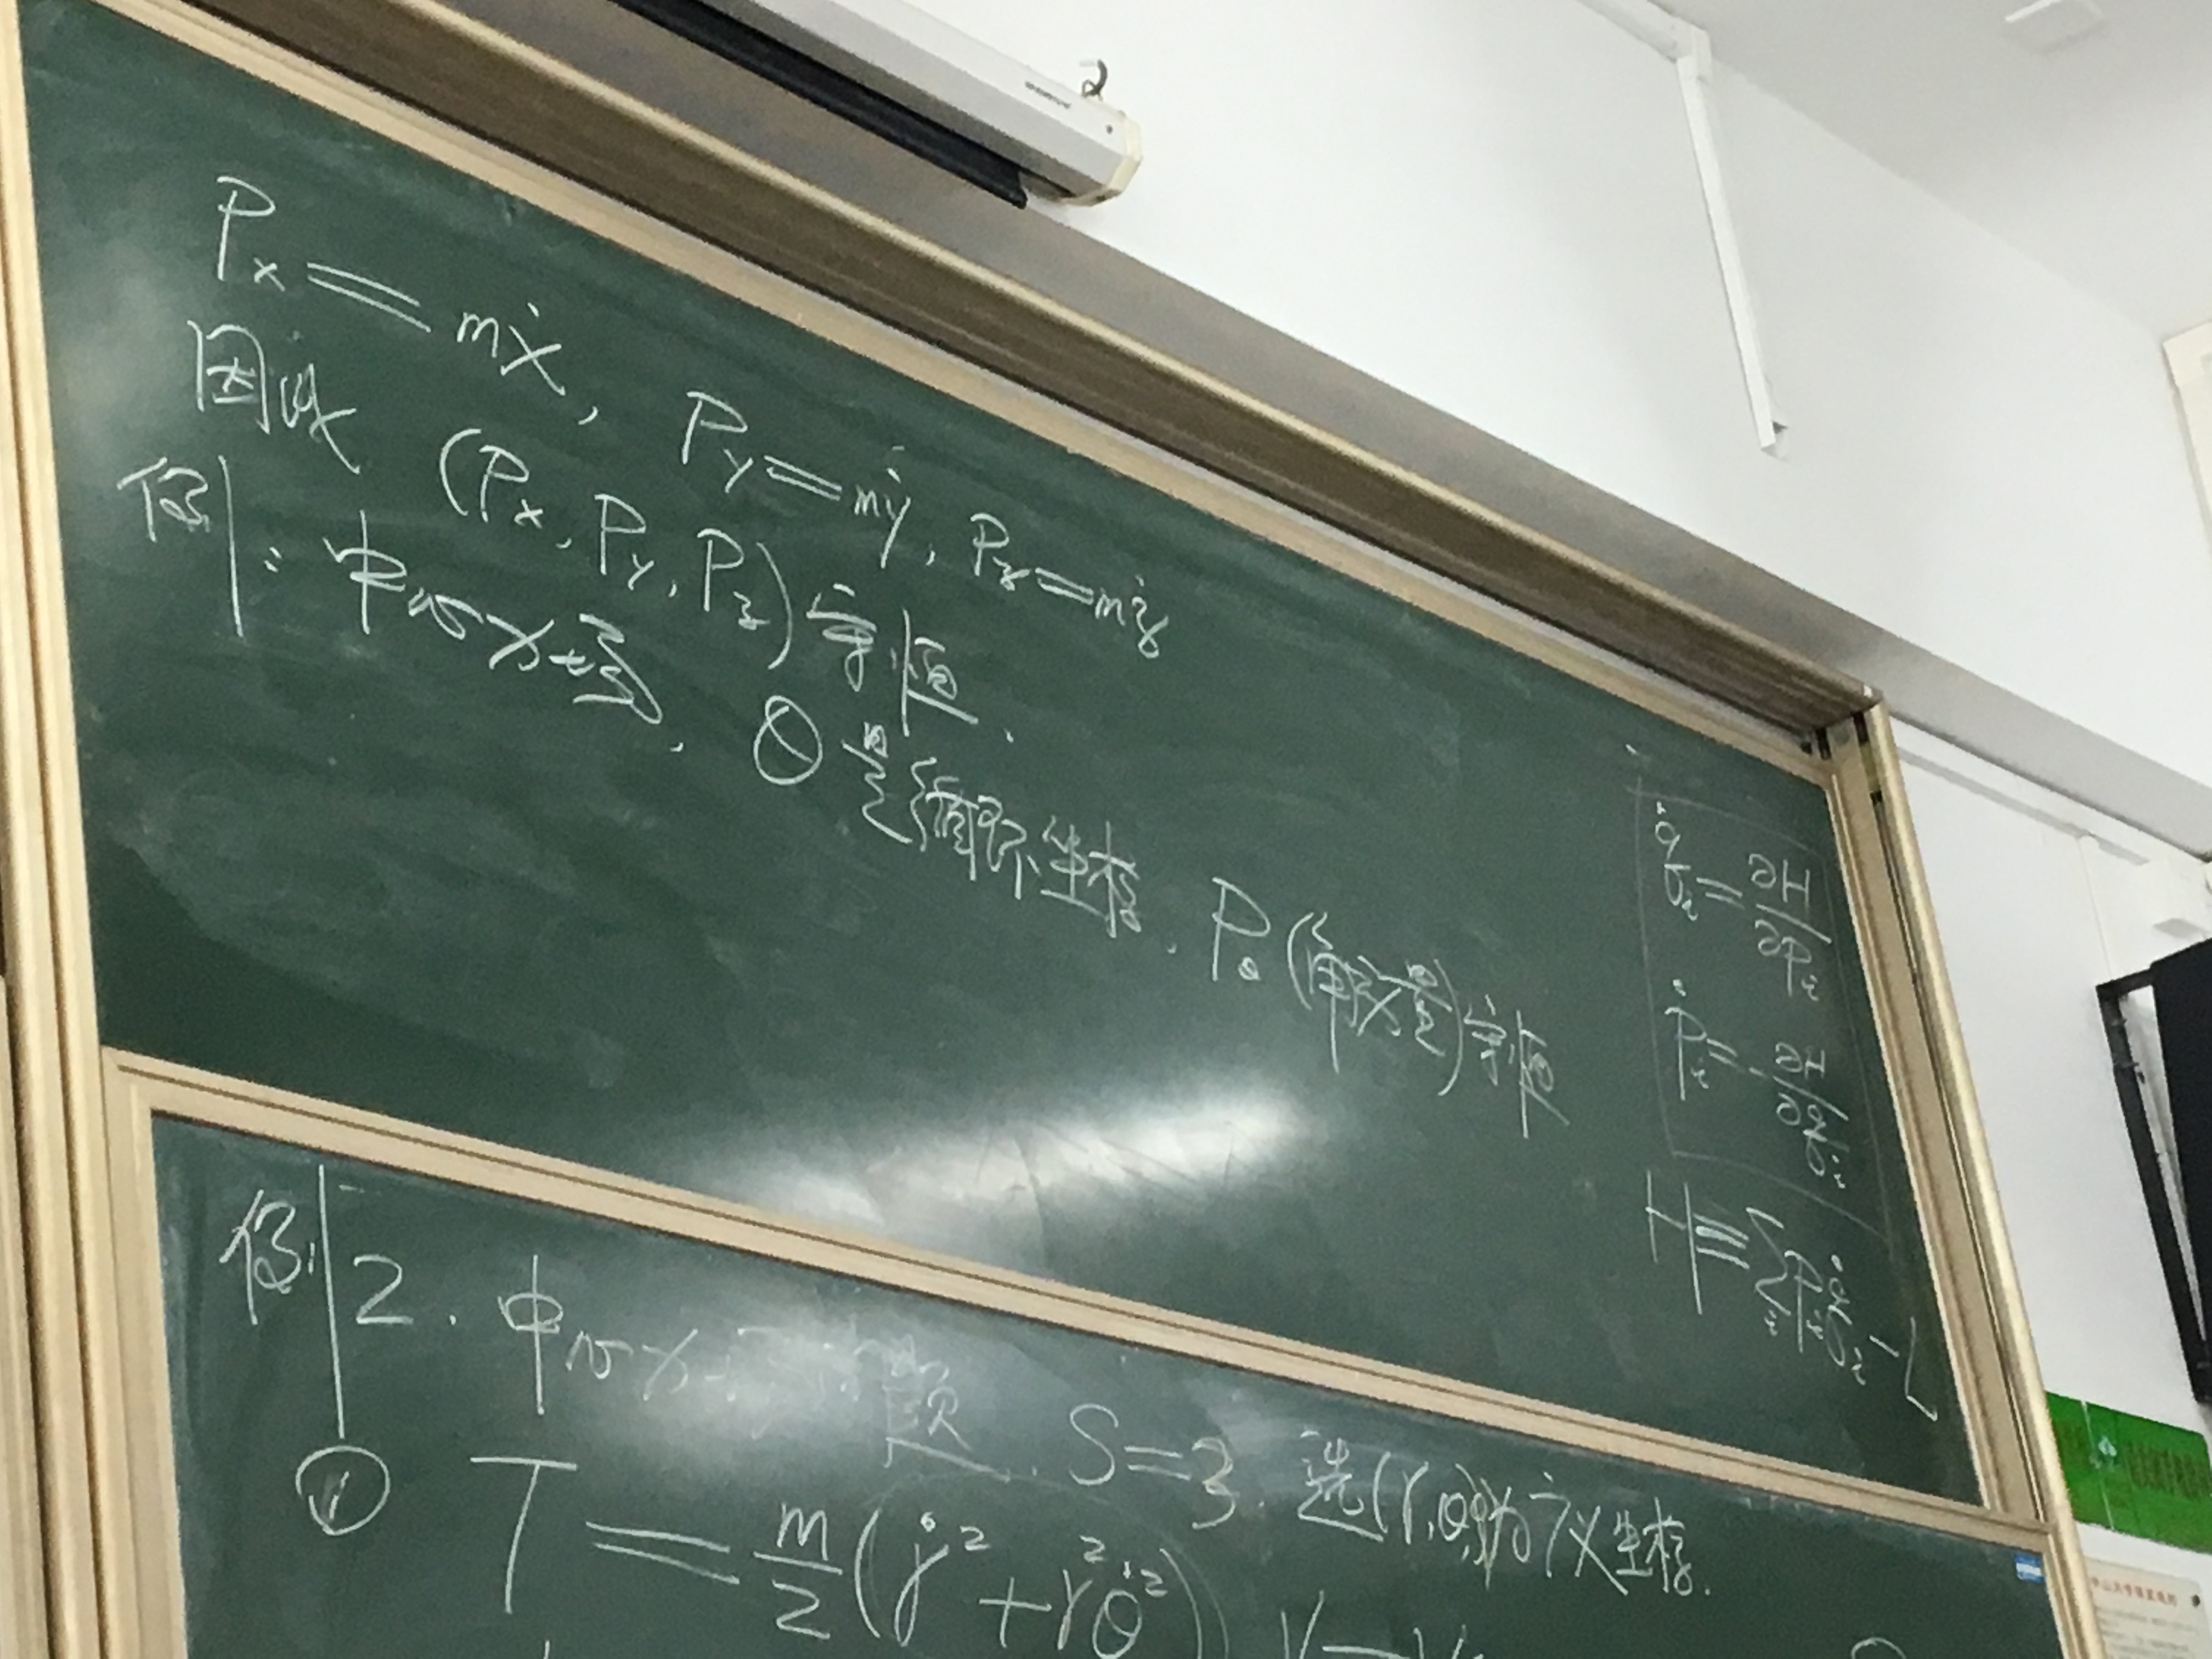 Px = mẋ, Py = mẏ, Pz = mż
因此 (Px, Py, Pz) 守恒.
例: 中心力场. θ 是循环坐标. Pθ (角动量) 守恒
q̇i = ∂H/∂Pi
Ṗi = -∂H/∂qi
H ≡ Σi Pi q̇i - L
例2. 中心力场问题. S=3. 选(r,θ,φ)为广义坐标.
① T = m/2 (ṙ² + r²θ̇²)